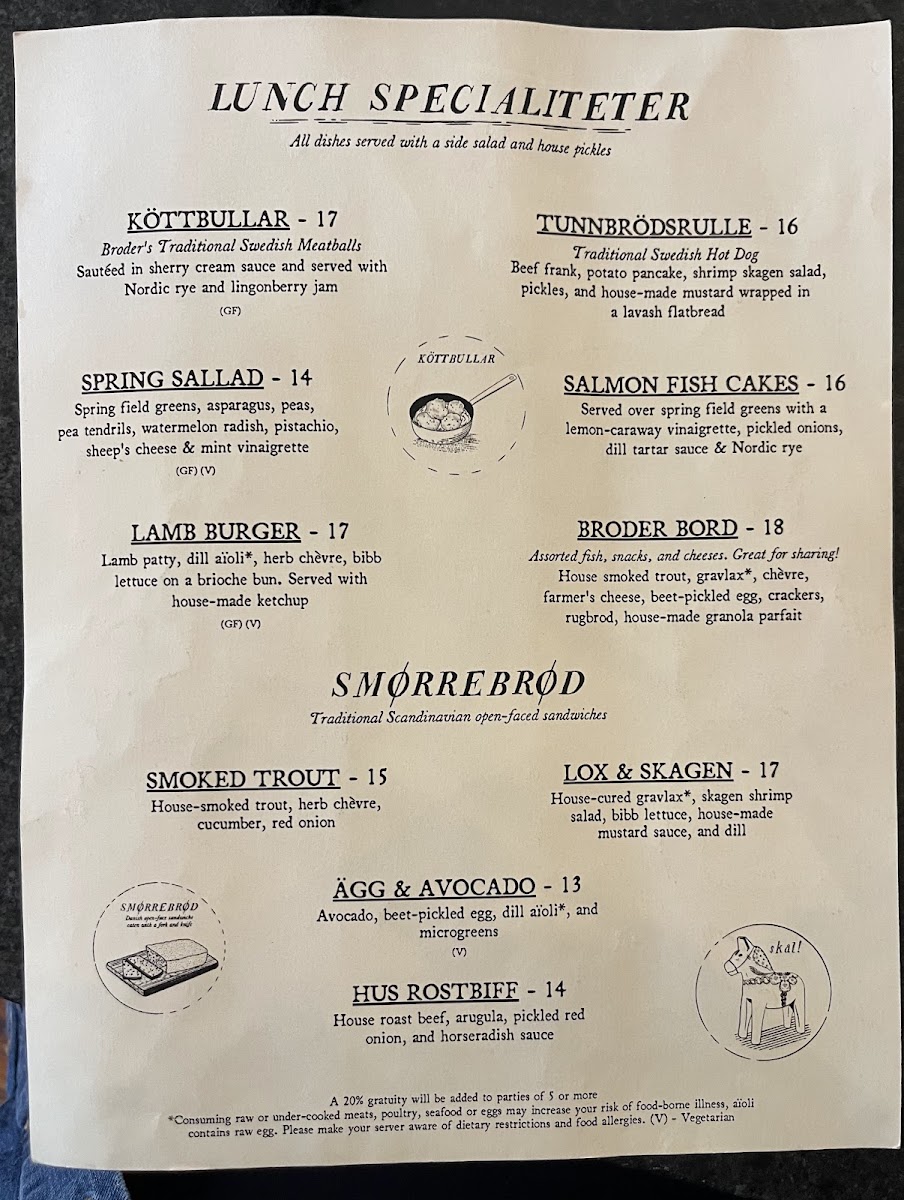 LUNCH SPECIALITETER
All dishes served with a side salad and house pickles
KÖTTBULLAR - 17
Broder's Traditional Swedish Meatballs
Sautéed in sherry cream sauce and served with
Nordic rye and lingonberry jam
(GF)
TUNNBRÖDSRULLE - 16
Traditional Swedish Hot Dog
Beef frank, potato pancake, shrimp skagen salad,
pickles, and house-made mustard wrapped in
a lavash flatbread
KÖTTBULLAR
SPRING SALLAD - 14
Spring field greens, asparagus, peas,
pea tendrils, watermelon radish, pistachio,
sheep's cheese & mint vinaigrette
(GF) (V)
SALMON FISH CAKES - 16
Served over spring field greens with a
lemon-caraway vinaigrette, pickled onions,
dill tartar sauce & Nordic rye
LAMB BURGER - 17
Lamb patty, dill aïoli*, herb chèvre, bibb
lettuce on a brioche bun. Served with
house-made ketchup
(GF) (V)
BRODER BORD - 18
Assorted fish, snacks, and cheeses. Great for sharing!
House smoked trout, gravlax*, chèvre,
farmer's cheese, beet-pickled egg, crackers,
rugbrod, house-made granola parfait
SMØRREBRØD
Traditional Scandinavian open-faced sandwiches
SMOKED TROUT - 15
House-smoked trout, herb chèvre,
cucumber, red onion
LOX & SKAGEN - 17
House-cured gravlax*, skagen shrimp
salad, bibb lettuce, house-made
mustard sauce, and dill
ÄGG & AVOCADO - 13
Avocado, beet-pickled egg, dill aïoli*, and
microgreens
(V)
SMØRREBRØD
Danish open-face sandwiche
eaten with a fork and knife
skal!
HUS ROSTBIFF - 14
House roast beef, arugula, pickled red
onion, and horseradish sauce
A 20% gratuity will be added to parties of 5 or more
*Consuming raw or under-cooked meats, poultry, seafood or eggs may increase your risk of food-borne illness, aïoli
contains raw egg. Please make your server aware of dietary restrictions and food allergies. (V) - Vegetarian